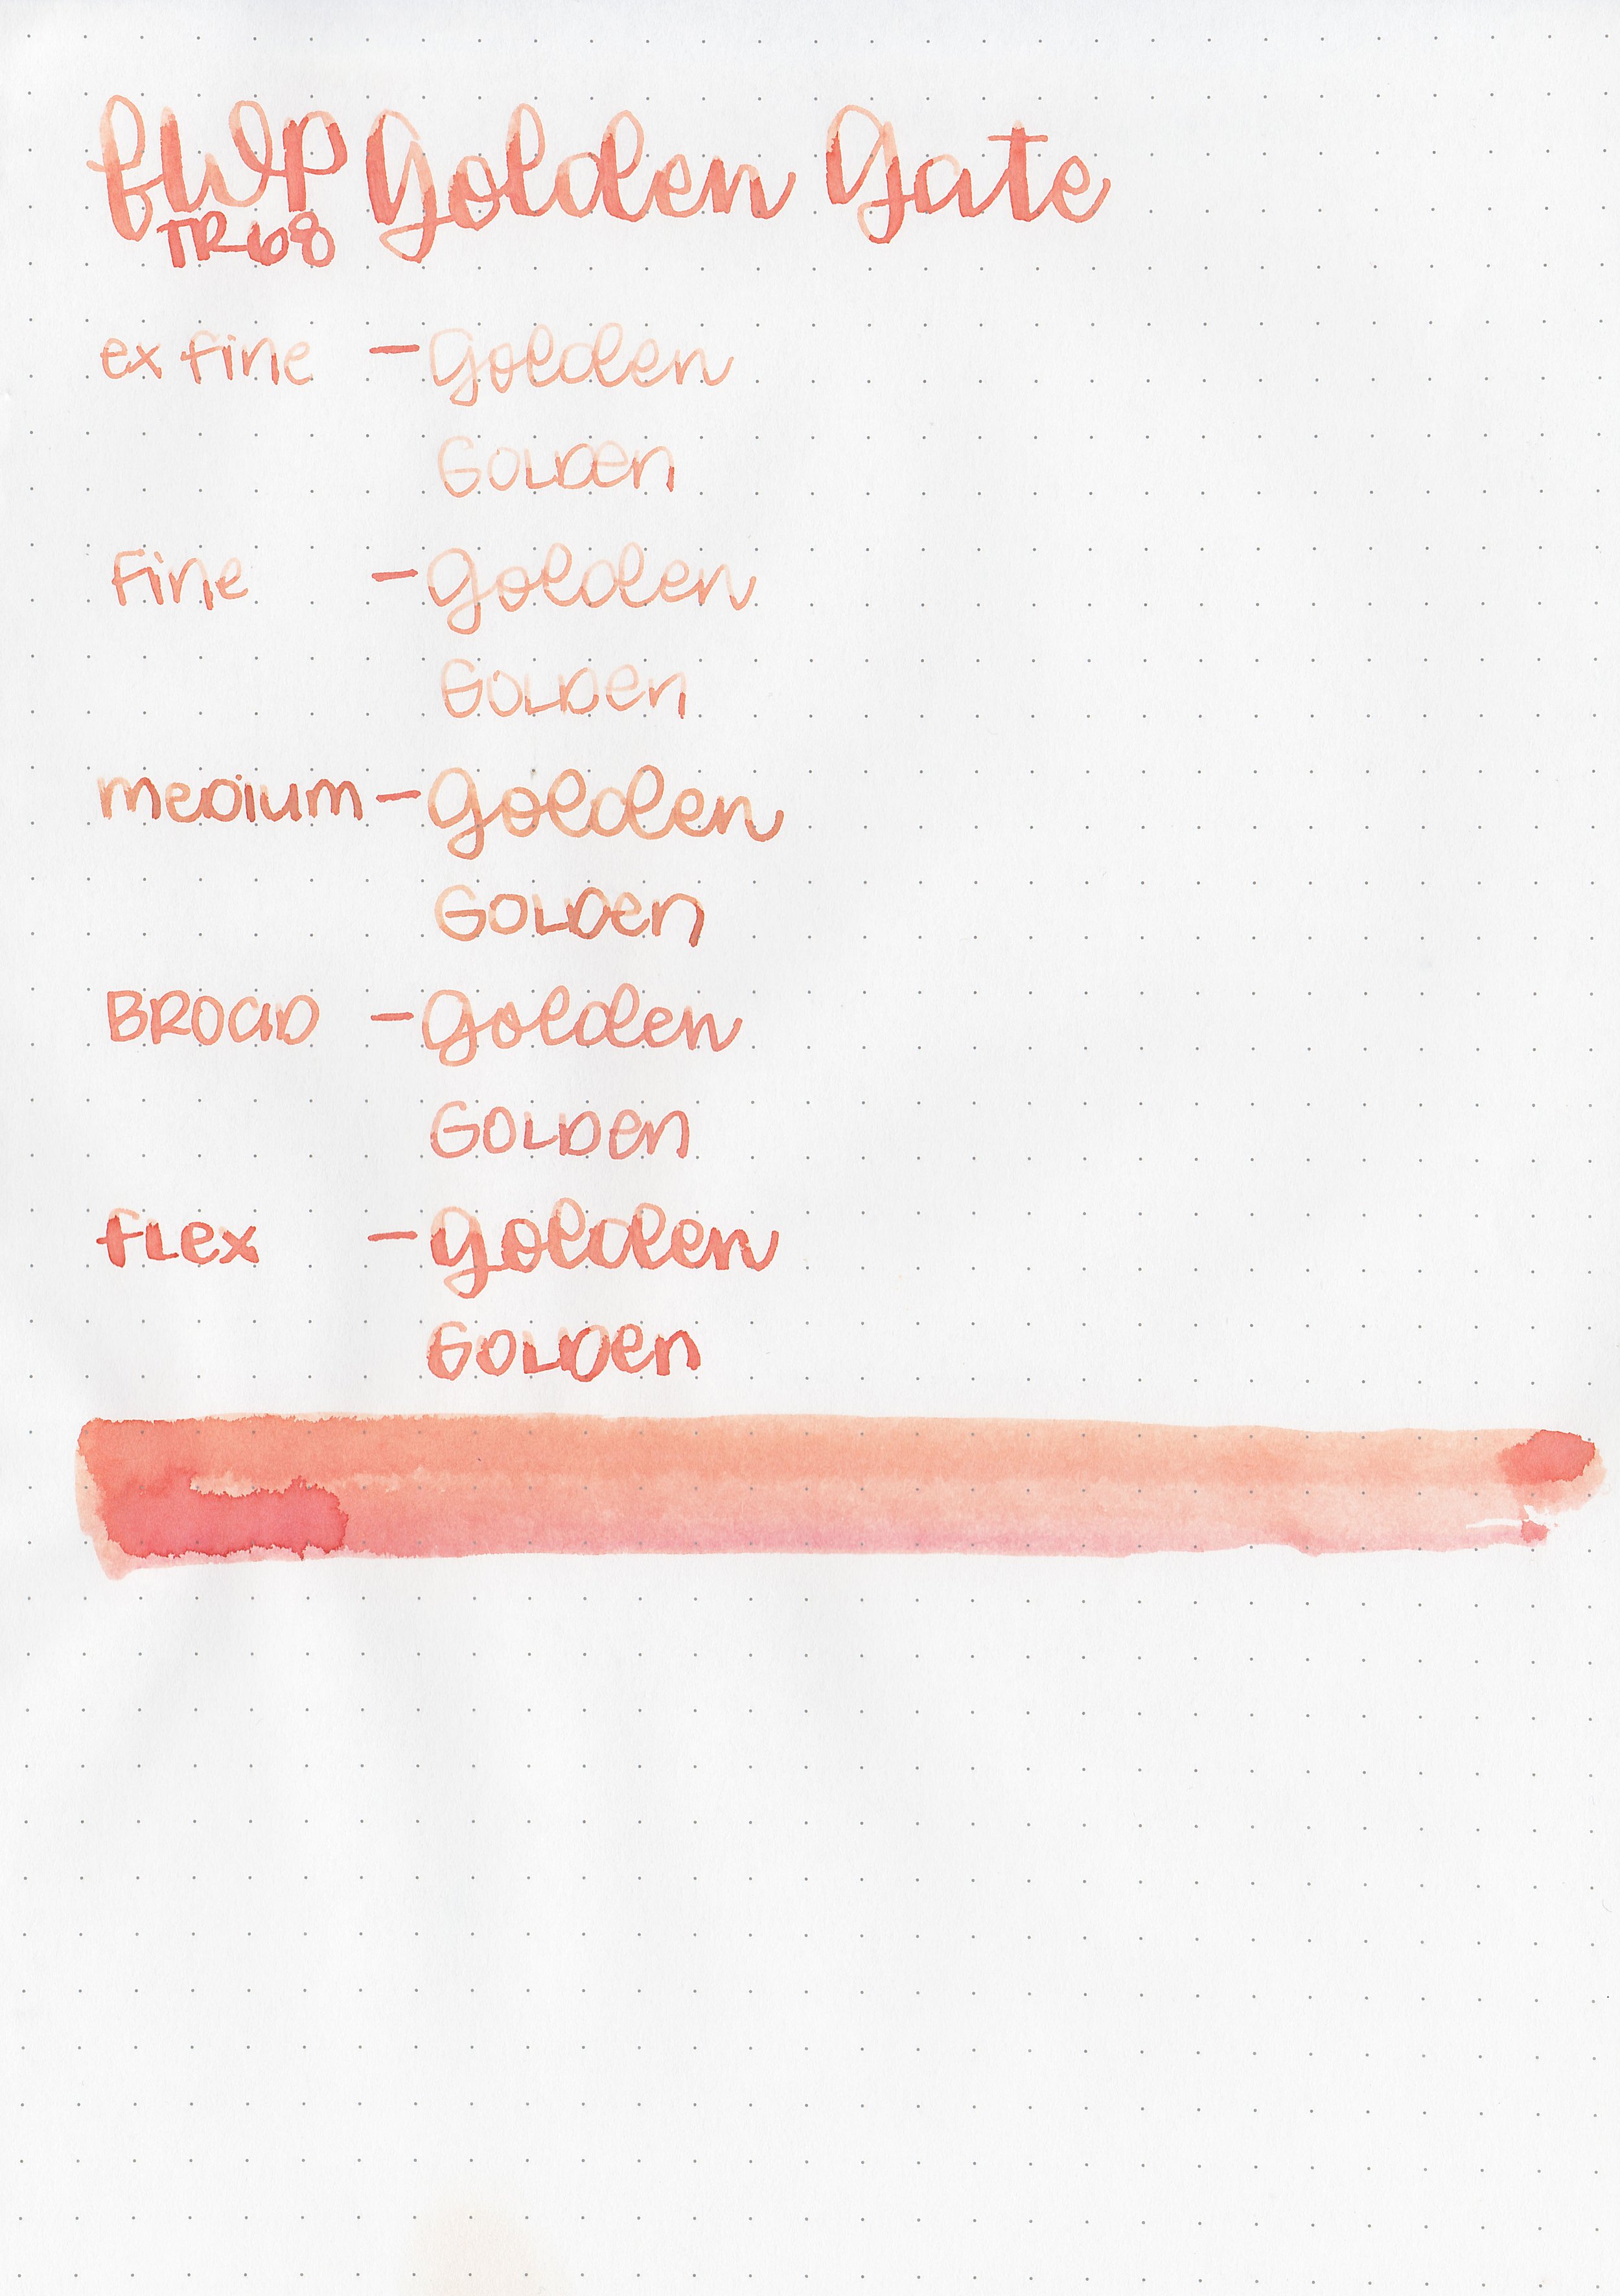 FWP Golden Gate
TR68
ex fine - Golden
GOLDEN
Fine - Golden
GOLDEN
medium - Golden
GOLDEN
BROAD - Golden
GOLDEN
FLEX - Golden
GOLDEN